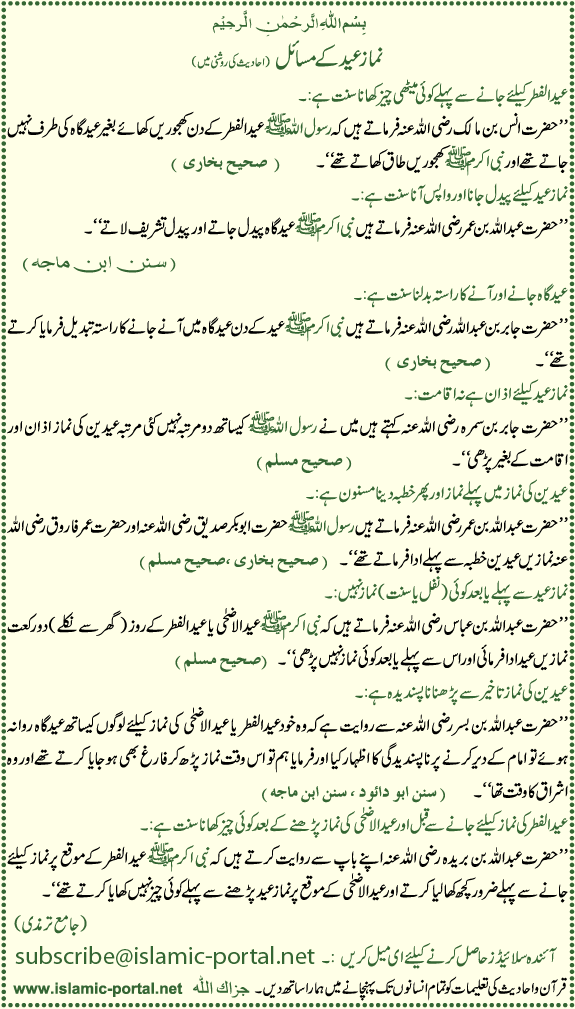 بِسْمِ اللهِ الرَّحْمٰنِ الرَّحِيْمِ
نمازِ عید کے مسائل (احادیث کی روشنی میں)
عیدالفطر کیلئے جانے سے پہلے کوئی میٹھی چیز کھانا سنت ہے:۔
’’حضرت انس بن مالک رضی اللہ عنہ فرماتے ہیں کہ رسول اللہ ﷺ عیدالفطر کے دن کھجوریں کھائے بغیر عید گاہ کی طرف نہیں
جاتے تھے اور نبی اکرم ﷺ کھجوریں طاق کھاتے تھے‘‘۔ ( صحیح بخاری )
نماز عید کیلئے پیدل جانا اور واپس آنا سنت ہے:۔
’’حضرت عبداللہ بن عمر رضی اللہ عنہ فرماتے ہیں نبی اکرم ﷺ عید گاہ پیدل جاتے اور پیدل تشریف لاتے‘‘۔
( سنن ابن ماجه )
عید گاہ جانے اور آنے کا راستہ بدلنا سنت ہے:۔
’’حضرت جابر بن عبداللہ رضی اللہ عنہ فرماتے ہیں نبی اکرم ﷺ عید کے دن عید گاہ میں آنے جانے کا راستہ تبدیل فرمایا کرتے
تھے‘‘۔ ( صحیح بخاری )
نماز عید کیلئے اذان ہے نہ اقامت:۔
’’حضرت جابر بن سمرہ رضی اللہ عنہ کہتے ہیں میں نے رسول اللہ ﷺ کیساتھ دو مرتبہ نہیں کئی مرتبہ عیدین کی نماز اذان اور
اقامت کے بغیر پڑھی‘‘۔ ( صحیح مسلم )
عیدین کی نماز میں پہلے نماز اور پھر خطبہ دینا مسنون ہے:۔
’’حضرت عبداللہ بن عمر رضی اللہ عنہ فرماتے ہیں رسول اللہ ﷺ حضرت ابوبکر صدیق رضی اللہ عنہ اور حضرت عمر فاروق رضی اللہ
عنہ نمازیں عیدین خطبہ سے پہلے ادا فرماتے تھے‘‘۔ ( صحیح بخاری ،صحیح مسلم )
نماز عید سے پہلے یا بعد کوئی (نفل یا سنت) نماز نہیں:۔
’’حضرت عبداللہ بن عباس رضی اللہ عنہ فرماتے ہیں کہ نبی اکرم ﷺ عید الاضحٰی یا عیدالفطر کے روز (گھر سے نکلے) دو رکعت
نمازیں عید ادا فرمائی اور اس سے پہلے یا بعد کوئی نماز نہیں پڑھی‘‘۔ (صحیح مسلم )
عیدین کی نماز تاخیر سے پڑھنا ناپسندیدہ ہے:۔
’’حضرت عبداللہ بن بسر رضی اللہ عنہ سے روایت ہے کہ وہ خود عیدالفطر یا عیدالاضحٰی کی نماز کیلئے لوگوں کیساتھ عید گاہ روانہ
ہوئے تو امام کے دیر کرنے پر ناپسندیدگی کا اظہار کیا اور فرمایا ہم تو اس وقت نماز پڑھ کر فارغ بھی ہو جایا کرتے تھے اور وہ
اشراق کا وقت تھا‘‘۔ ( سنن ابو دائود ، سنن ابن ماجه )
عیدالفطر کی نماز کیلئے جانے سے قبل اور عید الاضحٰی کی نماز پڑھنے کے بعد کوئی چیز کھانا سنت ہے:۔
’’حضرت عبداللہ بن بریدہ رضی اللہ عنہ اپنے باپ سے روایت کرتے ہیں کہ نبی اکرم ﷺ عیدالفطر کے موقع پر نماز کیلئے
جانے سے پہلے ضرور کچھ کھا لیا کرتے اور عید الاضحٰی کے موقع پر نماز عید پڑھنے سے پہلے کوئی چیز نہیں کھایا کرتے تھے‘‘۔
(جامع ترمذی)
آئندہ سلائیڈز حاصل کرنے کیلئے ای میل کریں :۔ subscribe@islamic-portal.net
قرآن و احادیث کی تعلیمات کو تمام انسانوں تک پہنچانے میں ہمارا ساتھ دیں۔ جزاك الله www.islamic-portal.net